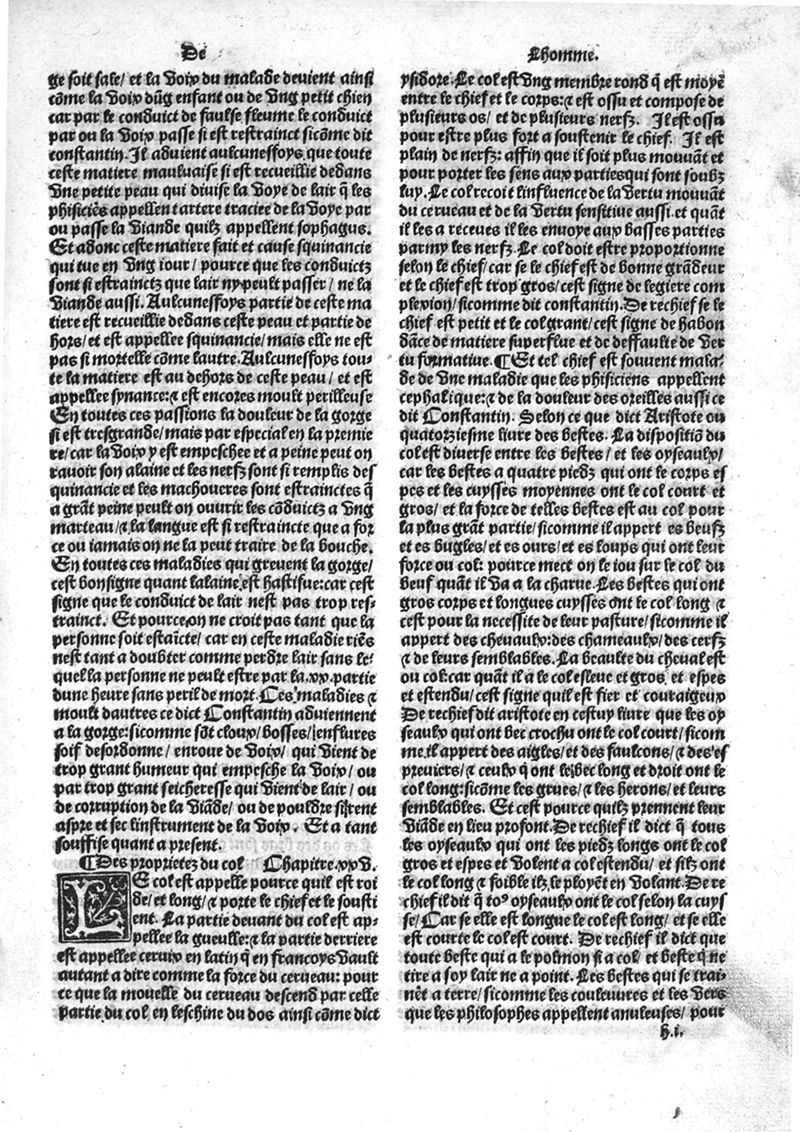 De
Lhomme.
ge soit sale/ et la voix du malade devient ainsi
cõme la voix dũg enfant ou de vng petit chien
car par le conduict de faulse fleume le conduict
par ou la voix passe si est restrainct sicõme dit
constantin. Il aduient aulcunesfoys que toute
ceste matiere mauluaise si est recueillie dedans
vne petite peau qui diuise la voye de lair q̃ les
phisiciẽs appellent tartere traciee de la voye par
ou passe la viande quilz appellent sophagus.
Et adonc ceste matiere fait et cause squinancie
qui tue en vng iour/ pource que les conduictz
sont si estrainctz que lair ny peult passer/ ne la
viande aussi. Aulcunesfoys partie de ceste ma
tiere est recueillie dedans ceste peau et partie de
hors/ et est appellee squinancie/ mais elle ne est
pas si mortelle cõme lautre. Aulcunesfoys tou-
te la matiere est au dehors de ceste peau/ et est
appellee synance: ⁊ est encores moult perilleuse
En toutes ces passions la douleur de la gorge
si est tresgrande/ mais par especial en la premie
re/ car la voix y est empeschee et a peine peut on
rauoir son alaine et les nerfz sont si remplis des
quinancie et les machoueres sont estrainctes q̃
a grãt peine peult on ouurir les cõduictz a vng
marteau/ ⁊ la langue est si restraincte que a for
ce ou iamais on ne la peut traire de la bouche.
En toutes ces maladies qui greuent la gorge/
cest bon signe quant lalaine est hastifue: car cest
signe que le conduict de lair nest pas trop res-
trainct. Et pource on ne croit pas tant que la
personne soit estaĩcte/ car en ceste maladie riẽs
nest tant a doubter comme perdre lair sans le-
quel la personne ne peult estre par la .xx. partie
dune heure sans peril de mort. Ces maladies ⁊
moult dautres ce dict Constantin aduiennent
a la gorge: sicomme sõt cloux/ bosses/ enflures
soif desordonne/ enroue de voix/ qui vient de
trop grant humeur qui empesche la voix/ ou
par trop grant seicheresse qui vient de lair/ ou
de corruption de la viãde/ ou de pouldre si rent
aspre et sec linstrument de la voix. Et a tant
souffise quant a present.
¶ Des proprietez du col Chapitre. xxv.
LE col est appelle pource quil est roi
de/ et long/ ⁊ porte le chief et le sousti
ent. La partie deuant du col est ap-
pellee la gueulle: ⁊ la partie derriere
est appellee ceruix en latin q̃ en francoys vault
autant a dire comme la force du cerueau: pour
ce que la mouelle du cerueau descend par celle
partie du col en leschine du dos ainsi cõme dict
ysidore. Le col est vng membre rond q̃ est moyẽ
entre le chief et le corps: ⁊ est ossu et compose de
plusieurs os/ et de plusieurs nerfz. Il est ossu
pour estre plus fort a soustenir le chief. Il est
plain de nerfz: affin que il soit plus mouuãt et
pour porter les sens aux parties qui sont soubz
luy. Le col recoit linfluence de la vertu mouuãt
du cerueau et de la vertu sensitiue aussi. et quãt
il les a receues il les enuoye aux basses parties
parmy les nerfz. Le col doit estre proportionne
selon le chief/ car se le chief est de bonne grãdeur
et le chief est trop gros/ cest signe de legiere com
plexion/ sicomme dit constantin. De rechief se le
chief est petit et le col grant/ cest signe de habon
dãce de matiere superflue et de deffaulte de ver
tu formatiue. ¶ Et tel chief est souuent mala-
de de vne maladie que les phisiciens appellent
cephalique: ⁊ de la douleur des oreilles aussi ce
dit Constantin. Selon ce que dict Aristote ou
quatorziesme liure des bestes. La dispositiõ du
col est diuerse entre les bestes/ et les oyseaulx/
car les bestes a quatre piedz qui ont le corps es
pes et les cuysses moyennes ont le col court et
gros/ et la force de telles bestes est au col pour
la plus grãt partie/ sicomme il appert es beufz
et es bugles/ et es ours/ et es loups qui ont leur
force ou col: pource mect on le iou sur le col du
beuf quãt il va a la charue. Les bestes qui ont
gros corps et longues cuysses õnt le col long ⁊
cest pour la necessite de leur pasture/ sicomme il
appert des cheuaulx: des chameaulx/ des cerfz
⁊ de leurs semblables. La beaulte du cheual est
ou col: car quant il a le col esleue et gros, et espes
et estendu/ cest signe quil est fier et couraigeux
De rechief dit aristote en cestuy liure que les oy
seaulx qui ont bec crochu ont le col court/ sicom
me il appert des aigles/ et des faulcons/ ⁊ des es
preuiers/ ⁊ ceulx q̃ ont le bec long et droit ont le
col long: sicõme les grues/ ⁊ les herons/ et leurs
semblables. Et cest pource quilz prennent leur
viãde en lieu profont. De rechief il dict q̃ tous
les oyseaulx qui ont les piedz longs ont le col
gros et espes et volent a col estendu/ et silz ont
le col long ⁊ foible ilz le ployẽt en volant. De re
chief il dit q̃ to⁹ oyseaulx ont le col selon la cuys
se/ Car se elle est longue le col est long/ et se elle
est courte le col est court. De rechief il dict que
toute beste qui a le polmon si a col/ et beste q̃ ne
tire a soy lair ne a point. Les bestes qui se trai-
nẽt a terre/ sicomme les couleuures et les vers
que les philosophes appellent anuleuses/ pour
h.i.